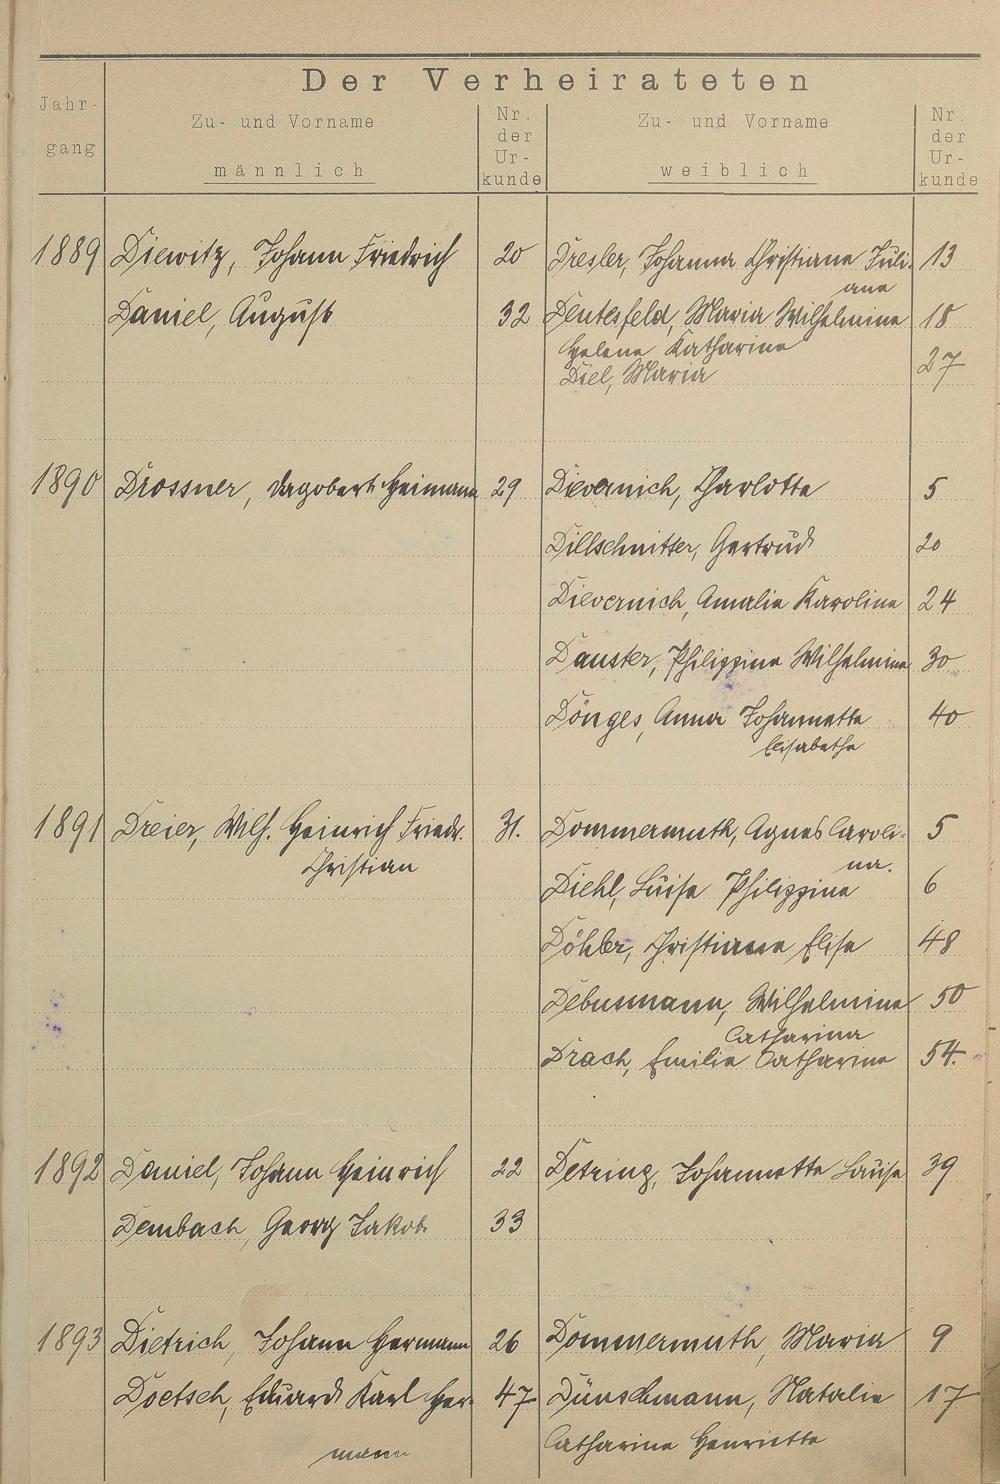 Der Verheirateten
Jahr-
gang
Zu- und Vorname
männlich
Nr.
der
Ur-
kunde
Zu- und Vorname
weiblich
Nr.
der
Ur-
kunde
1889 Diewitz, Johann Friedrich 20 Dresler, Johanna Christiane Juli- 13
ane
Daniel, August 32 Dentesfeld, Maria Wilhelmine 18
Helene Katharine
Diel, Maria 27
1890 Drossner, Dagobert Heimann 29 Dievernich, Charlotte 5
Dillschnitter, Gertrud 20
Dievernich, Amalie Karoline 24
Dauster, Philippine Wilhelmine 30
Dönges, Anna Johannette 40
Elisabethe
1891 Dreier, Wilh. Heinrich Friedr. 31. Dommermuth, Agnes Caroli- 5
Christian
na.
Diehl, Luise Philippine 6
Döhler, Christiane Elise 48
Debusmann, Wilhelmine 50
Catharina
Drach, Emilie Catharine 54.
1892 Daniel, Johann Heinrich 22 Detring, Johannette Louise 39
Dembach, Georg Jakob 33
1893 Dietrich, Johann Hermann 26 Dommermuth, Maria 9
Doetsch, Eduard Karl Her- 47 Dünschmann, Natalie 17
mann
Catharine Henriette